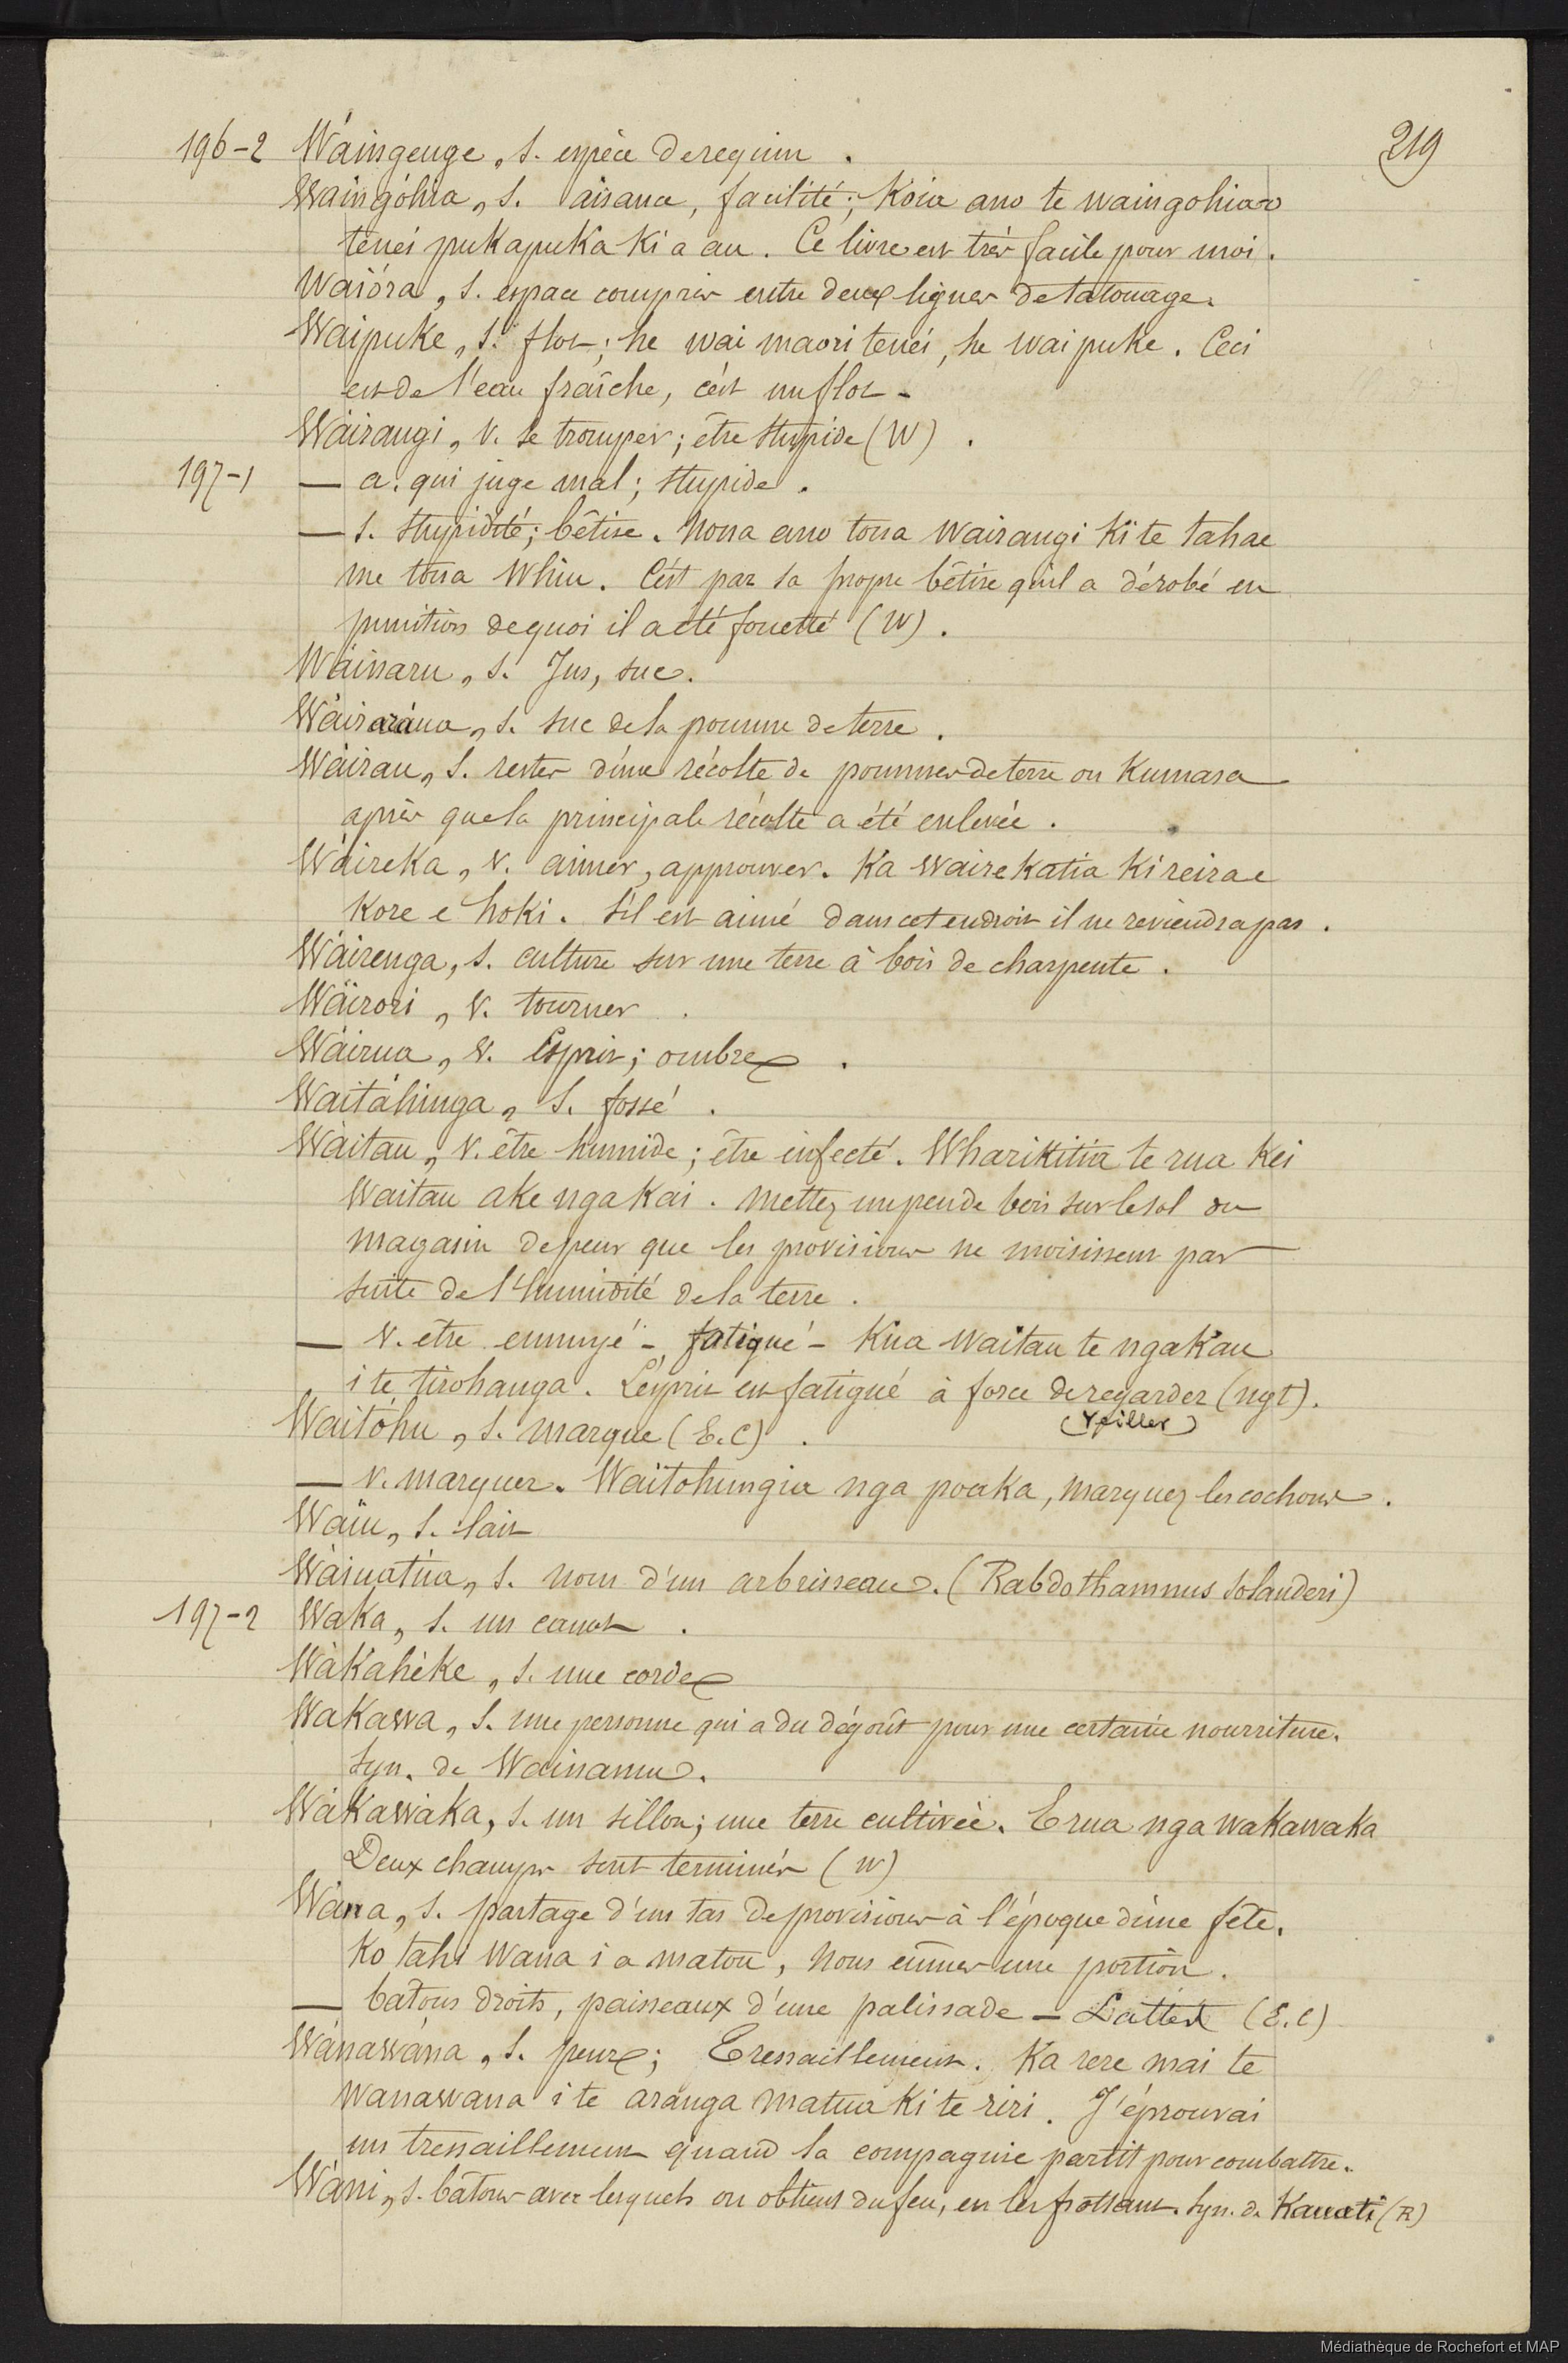 219
196-2 Wáingenge, s. espèce de requin.
Waingóhia, s. aisance, facilité; Koia ano te waingohia o
tenei pukapuka ki a au. Ce livre est très facile pour moi.
Waióra, s. espace compris entre deux lignes de tatouage.
Waipuke, s. flot; he wai maori tenei, he waipuke. Ceci
est de l'eau fraîche, c'est un flot.
Wáirangi, v. se tromper; être stupide (W).
197-1 — a. qui juge mal; stupide.
— s. stupidité; bêtise. Nona ano tona wairangi ki te tahae
me tona whiu. C'est par sa propre bêtise qu'il a dérobé en
punition de quoi il a été fouetté (W).
Wáiraru, s. Jus, suc.
Wáirarána, s. suc de la pomme de terre.
Wáirau, s. restes d'une récolte de pommes de terre ou Kumara
après que la principale récolte a été enlevée.
Wáireka, v. aimer, approuver. Ka wairekatia ki reira e
kore e hoki. S'il est aimé dans cet endroit il ne reviendra pas.
Wáirenga, s. culture sur une terre à bois de charpente.
Wáirori, v. tourner.
Wáirua, v. Esprit; ombre.
Waitáhinga, s. fossé.
Wáitau, v. être humide; être infecté. Wharikitia te rua kei
waitau ake nga kai. Mettez un peu de bois sur le sol du
magasin de peur que les provisions ne moisissent par
suite de l'humidité de la terre.
— v. être ennuyé - fatigué - Kua waitau te ngakau
i te tirohanga. L'esprit est fatigué à force de regarder (ngt).
(veiller)
Waitóhu, s. marque (E.C).
— v. marquer. Waitohungia nga poaka, marquez les cochons.
Waïu, s. lait
Wáiuatúa, s. nom d'un arbrisseau. (Rabdothamnus Solanderi)
197-2 Waka, s. un canot.
Wákahéke, s. une corde
Wakawa, s. une personne qui a du dégoût pour une certaine nourriture.
Syn. de Wainamu.
Wákawáka, s. un sillon; une terre cultivée. E rua nga wakawaka
Deux champs sont terminés (W)
Wána, s. partage d'un tas de provisions à l'époque d'une fête.
Ko tahi wana i a matou, Nous eûmes une portion.
— bâtons droits, paisseaux d'une palissade - Lattes (E.C)
Wánawána, s. peur; Tressaillement. Ka rere mai te
wanawana i te aranga matua ki te riri. J'éprouvai
un tressaillement quand la compagnie partit pour combattre.
Wáni, s. bâtons avec lesquels on obtient du feu, en les frottant. Syn. de Kauati (R)
Médiathèque de Rochefort et MAP